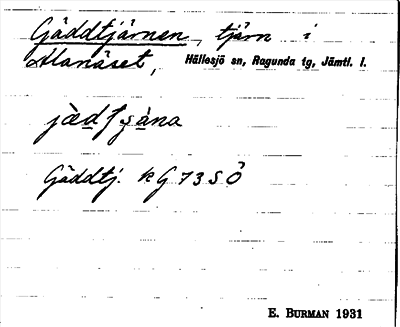 Gäddtjärnen, tjärn i
Alanäset, Hällesjö sn, Ragunda tg, Jämtl. l.
Gäddtj. kG 73 S Ö
E. BURMAN 1931